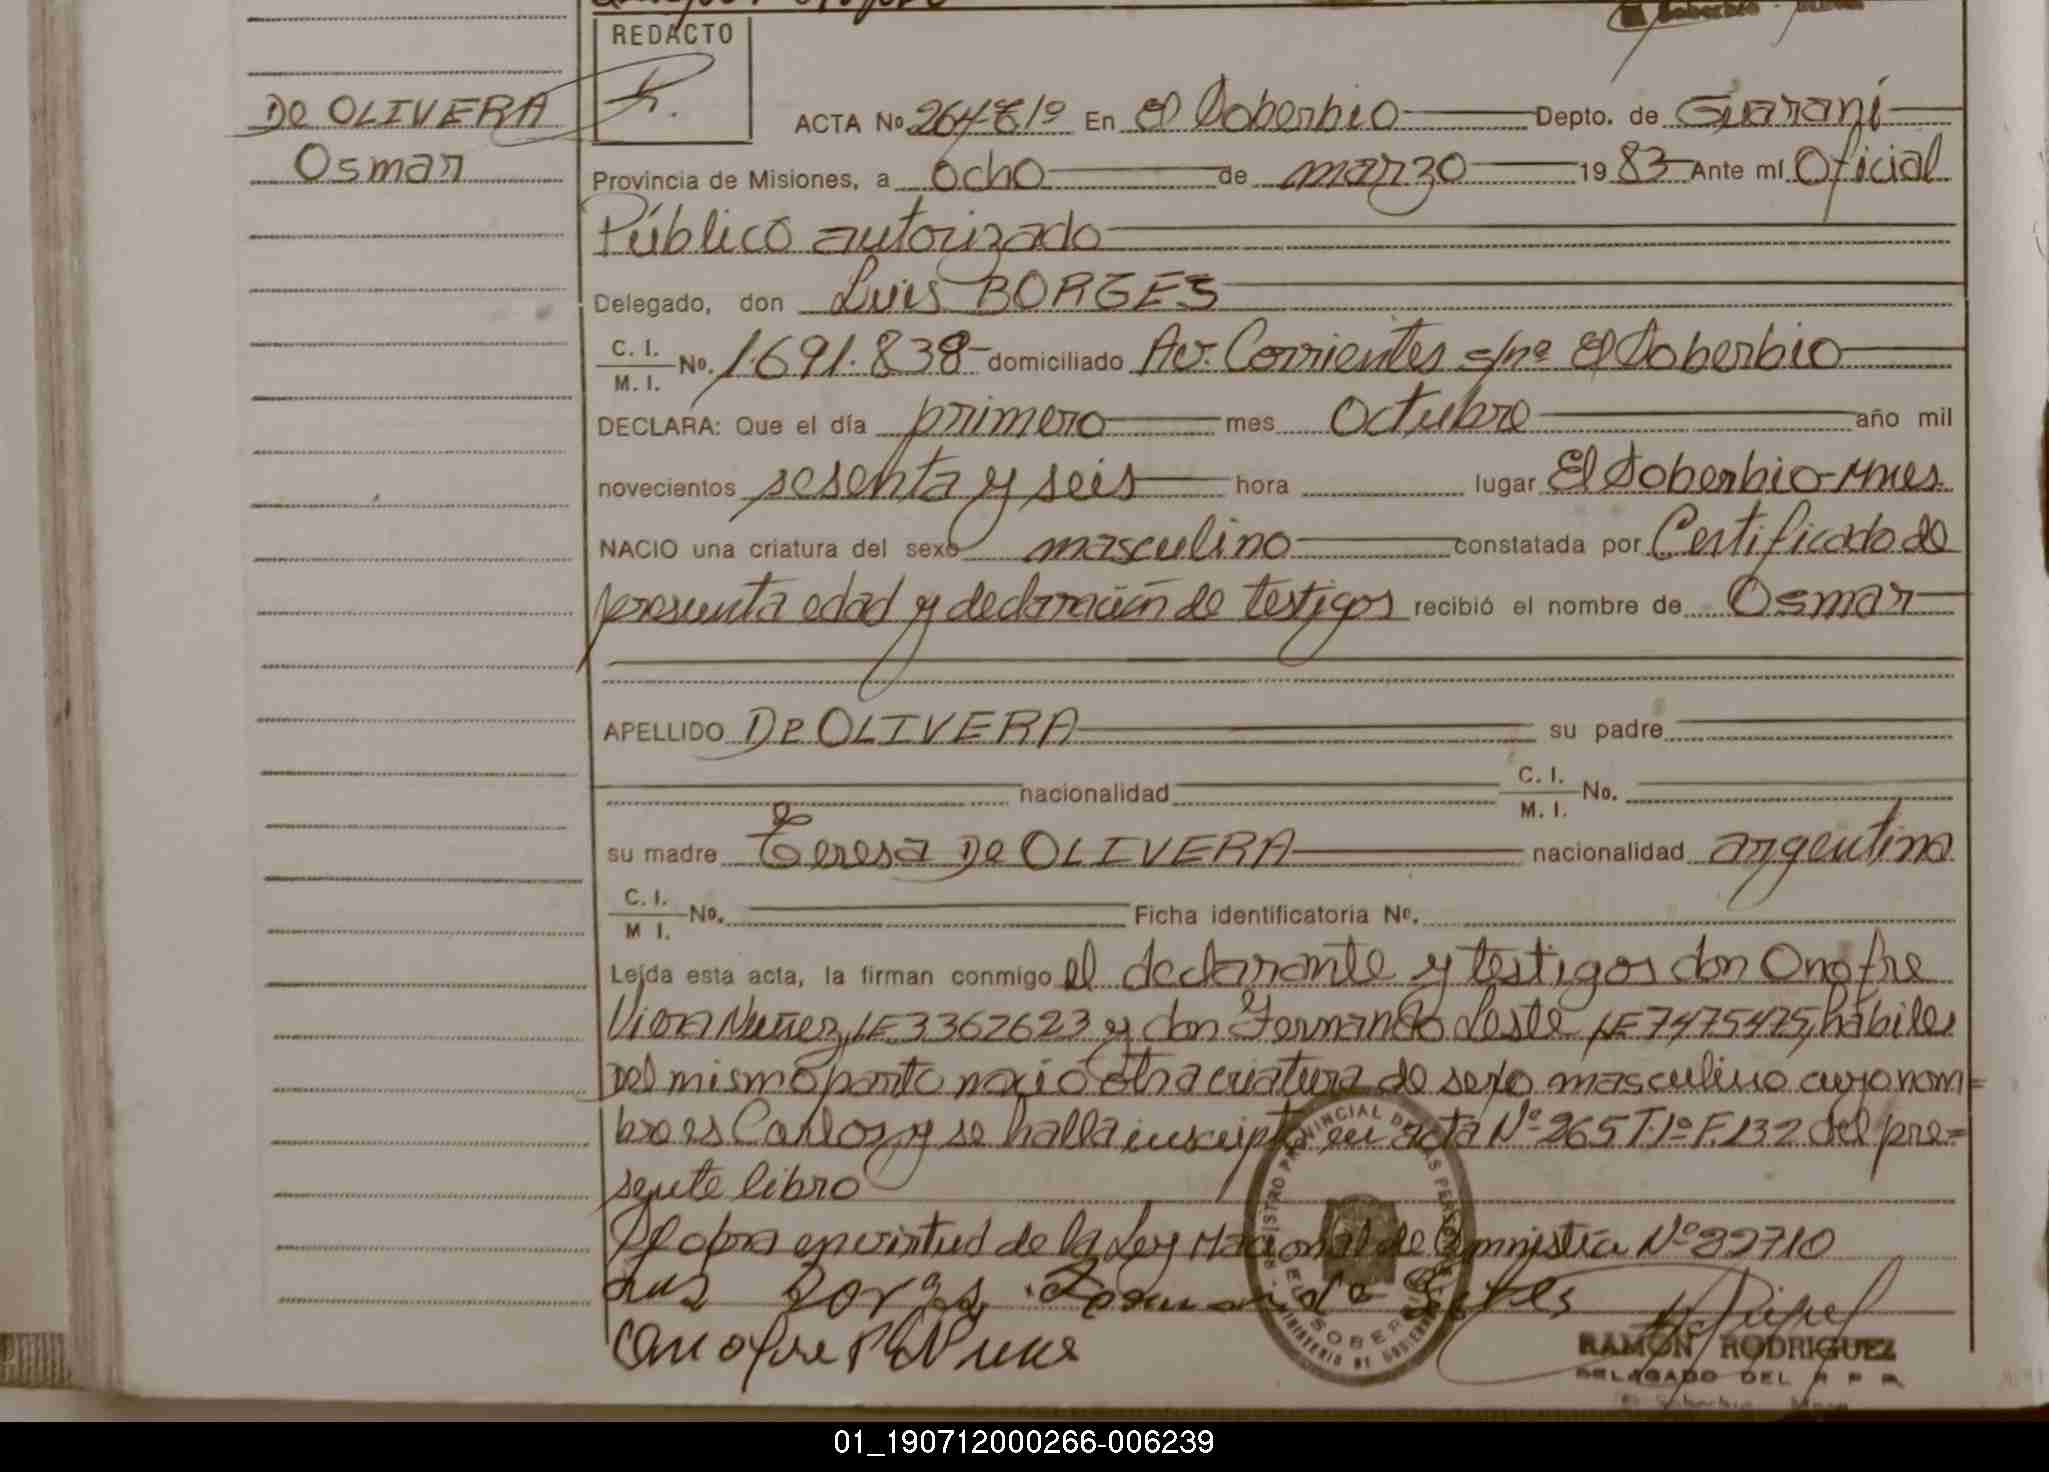 REDACTO
DE OLIVERA
Osmar
ACTA Nº 264 T 1º En El Soberbio Depto. de Guaraní
Provincia de Misiones, a ocho de marzo 1983 Ante mí Oficial
Público autorizado
Delegado, don Luis BORGES
C. I. / M. I. No. 1.691.838 domiciliado Av. Corrientes s/nº El Soberbio
DECLARA: Que el día primero mes octubre año mil
novecientos sesenta y seis hora lugar El Soberbio-Mnes
NACIO una criatura del sexo masculino constatada por Certificado de
presunta edad y declaración de testigos recibió el nombre de Osmar
APELLIDO DE OLIVERA su padre
nacionalidad C. I. / M. I. No.
su madre Teresa DE OLIVERA nacionalidad argentina
C. I. / M I. No. Ficha identificatoria Nº.
Leída esta acta, la firman conmigo el declarante y testigos don Onofre
Viera Nuñez, LE 3362623 y don Fernando Leste LE 7475475, hábiles
Del mismo parto nació otra criatura de sexo masculino cuyo nom=
bre es Carlos, y se halla inscripto en acta Nº 265 T.1º F.132 del pre=
sente libro
Se obra en virtud de la Ley Nacional de Amnistía Nº 22710
Luis Borges
REGISTRO PROVINCIAL DE LAS PERSONAS
MINISTERIO DE GOBIERNO
RAMON RODRIGUEZ
DELEGADO DEL R P P
El Soberbio
01_190712000266-006239